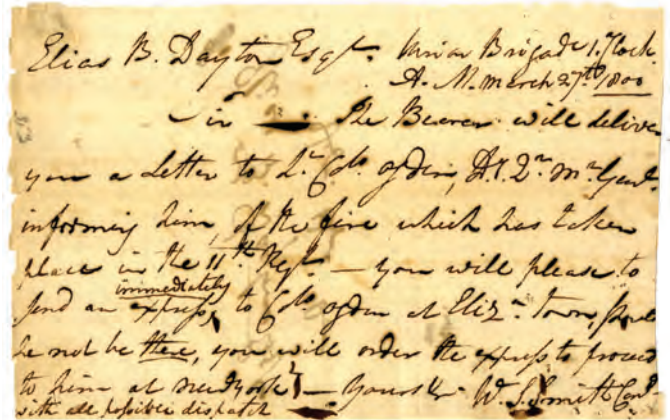 Elias B. Dayton Esqr. Union Brigade 1. oClock
A. M. March 27th. 1800
Sir The Bearer will deliver
you a Letter to Lt. Colo. Ogden, D. 2r. Mr. Genl.
informing him, of the fire which has taken
place in the 11th. Regt. — you will please to
send an express immediately to Colo. Ogden at Eliz.n Town, should
he not be there, you will order the express to proceed
to him at Newyork — Yours &c W. S. Smith
with all possible dispatch